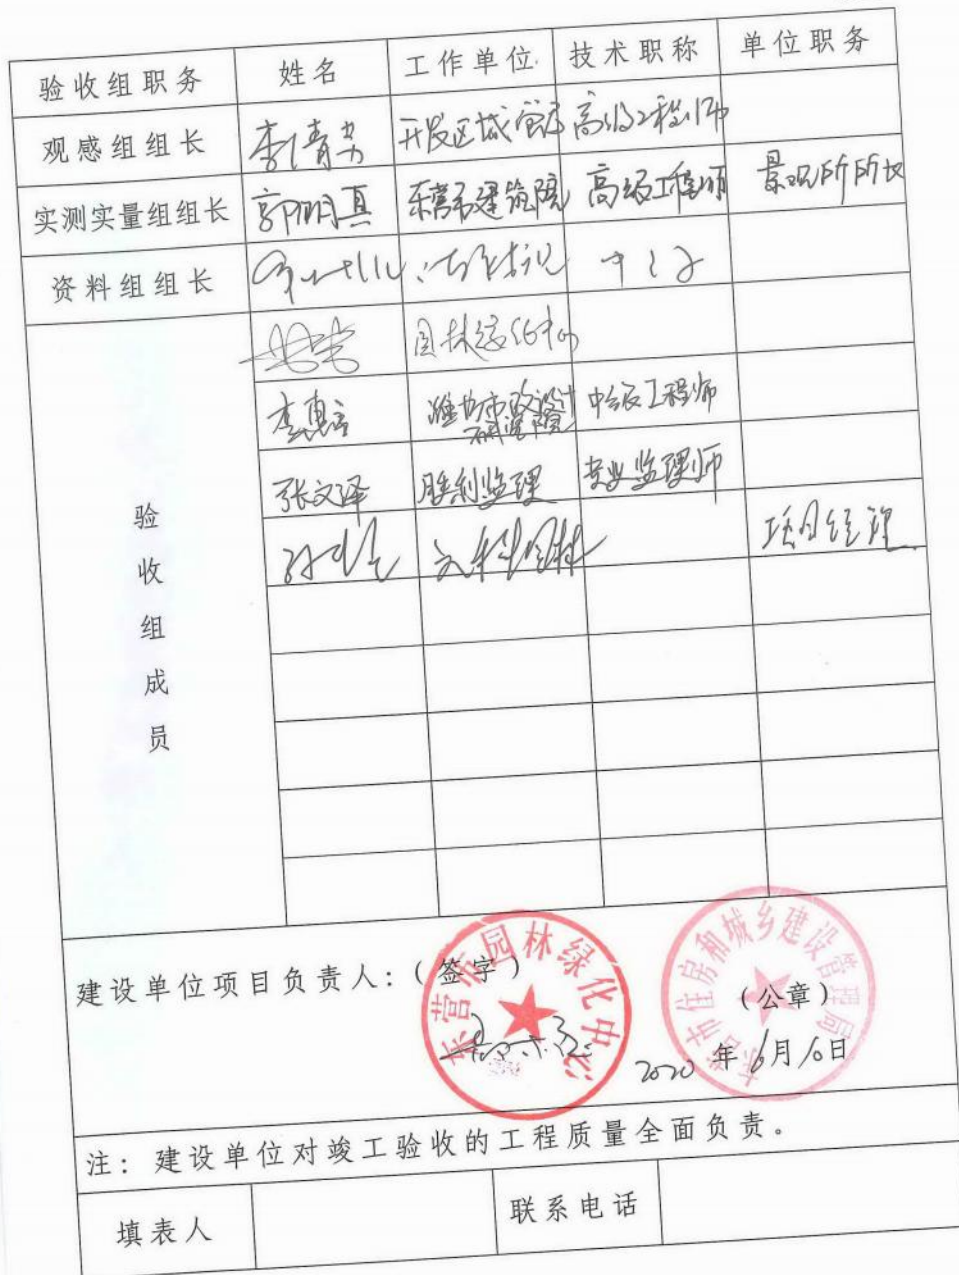 验收组职务 姓名 工作单位 技术职称 单位职务
观感组组长 李清芳 开发区城管局 高级工程师
实测实量组组长 郭明真 东营市建筑院 高级工程师 景观所所长
资料组组长
园林绿化中心
李惠言 潍坊市政设计研究院 中级工程师
张文泽 胜利监理 专业监理师
文科园林 项目经理
验收组成员
建设单位项目负责人:(签字)
东营市园林绿化中心
东营市住房和城乡建设管理局
(公章)
2020年6月10日
注:建设单位对竣工验收的工程质量全面负责。
填表人 联系电话